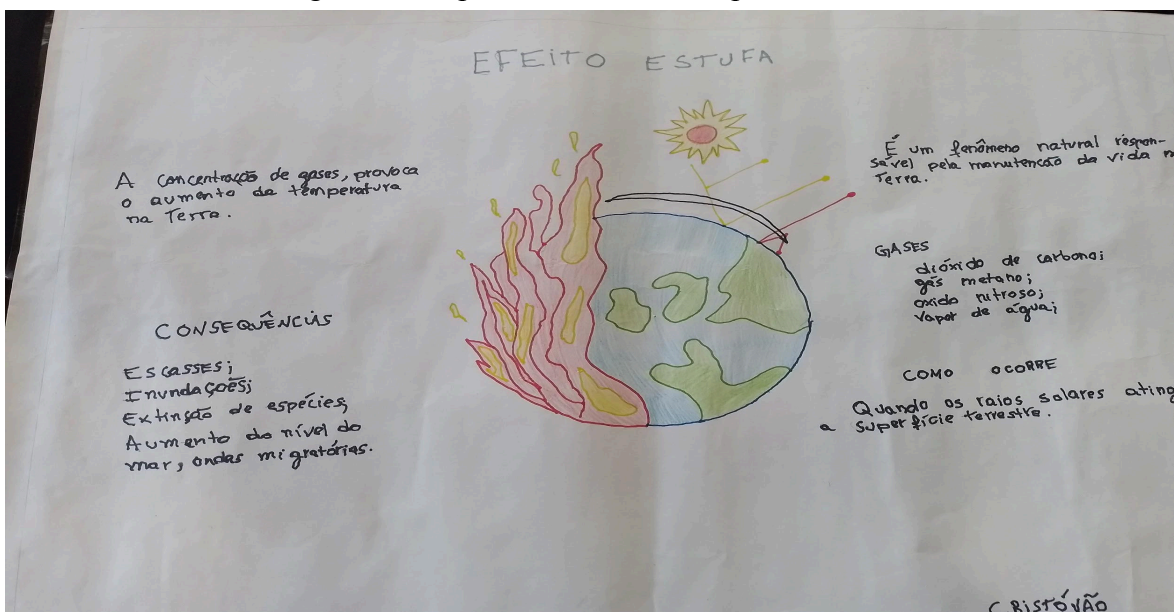 EFEITO ESTUFA
A concentração de gases, provoca
o aumento da temperatura
na Terra.
CONSEQUÊNCIAS
Escasses;
Inundações;
Extinção de espécies;
Aumento do nível do
mar, ondas migratórias.
É um fenômeno natural respon-
sável pela manutenção da vida n
Terra.
GASES
dióxido de carbono;
gás metano;
oxido nitroso;
vapor de água;
COMO OCORRE
Quando os raios solares ating
a superfície terrestre.
CRISTÓVÃO